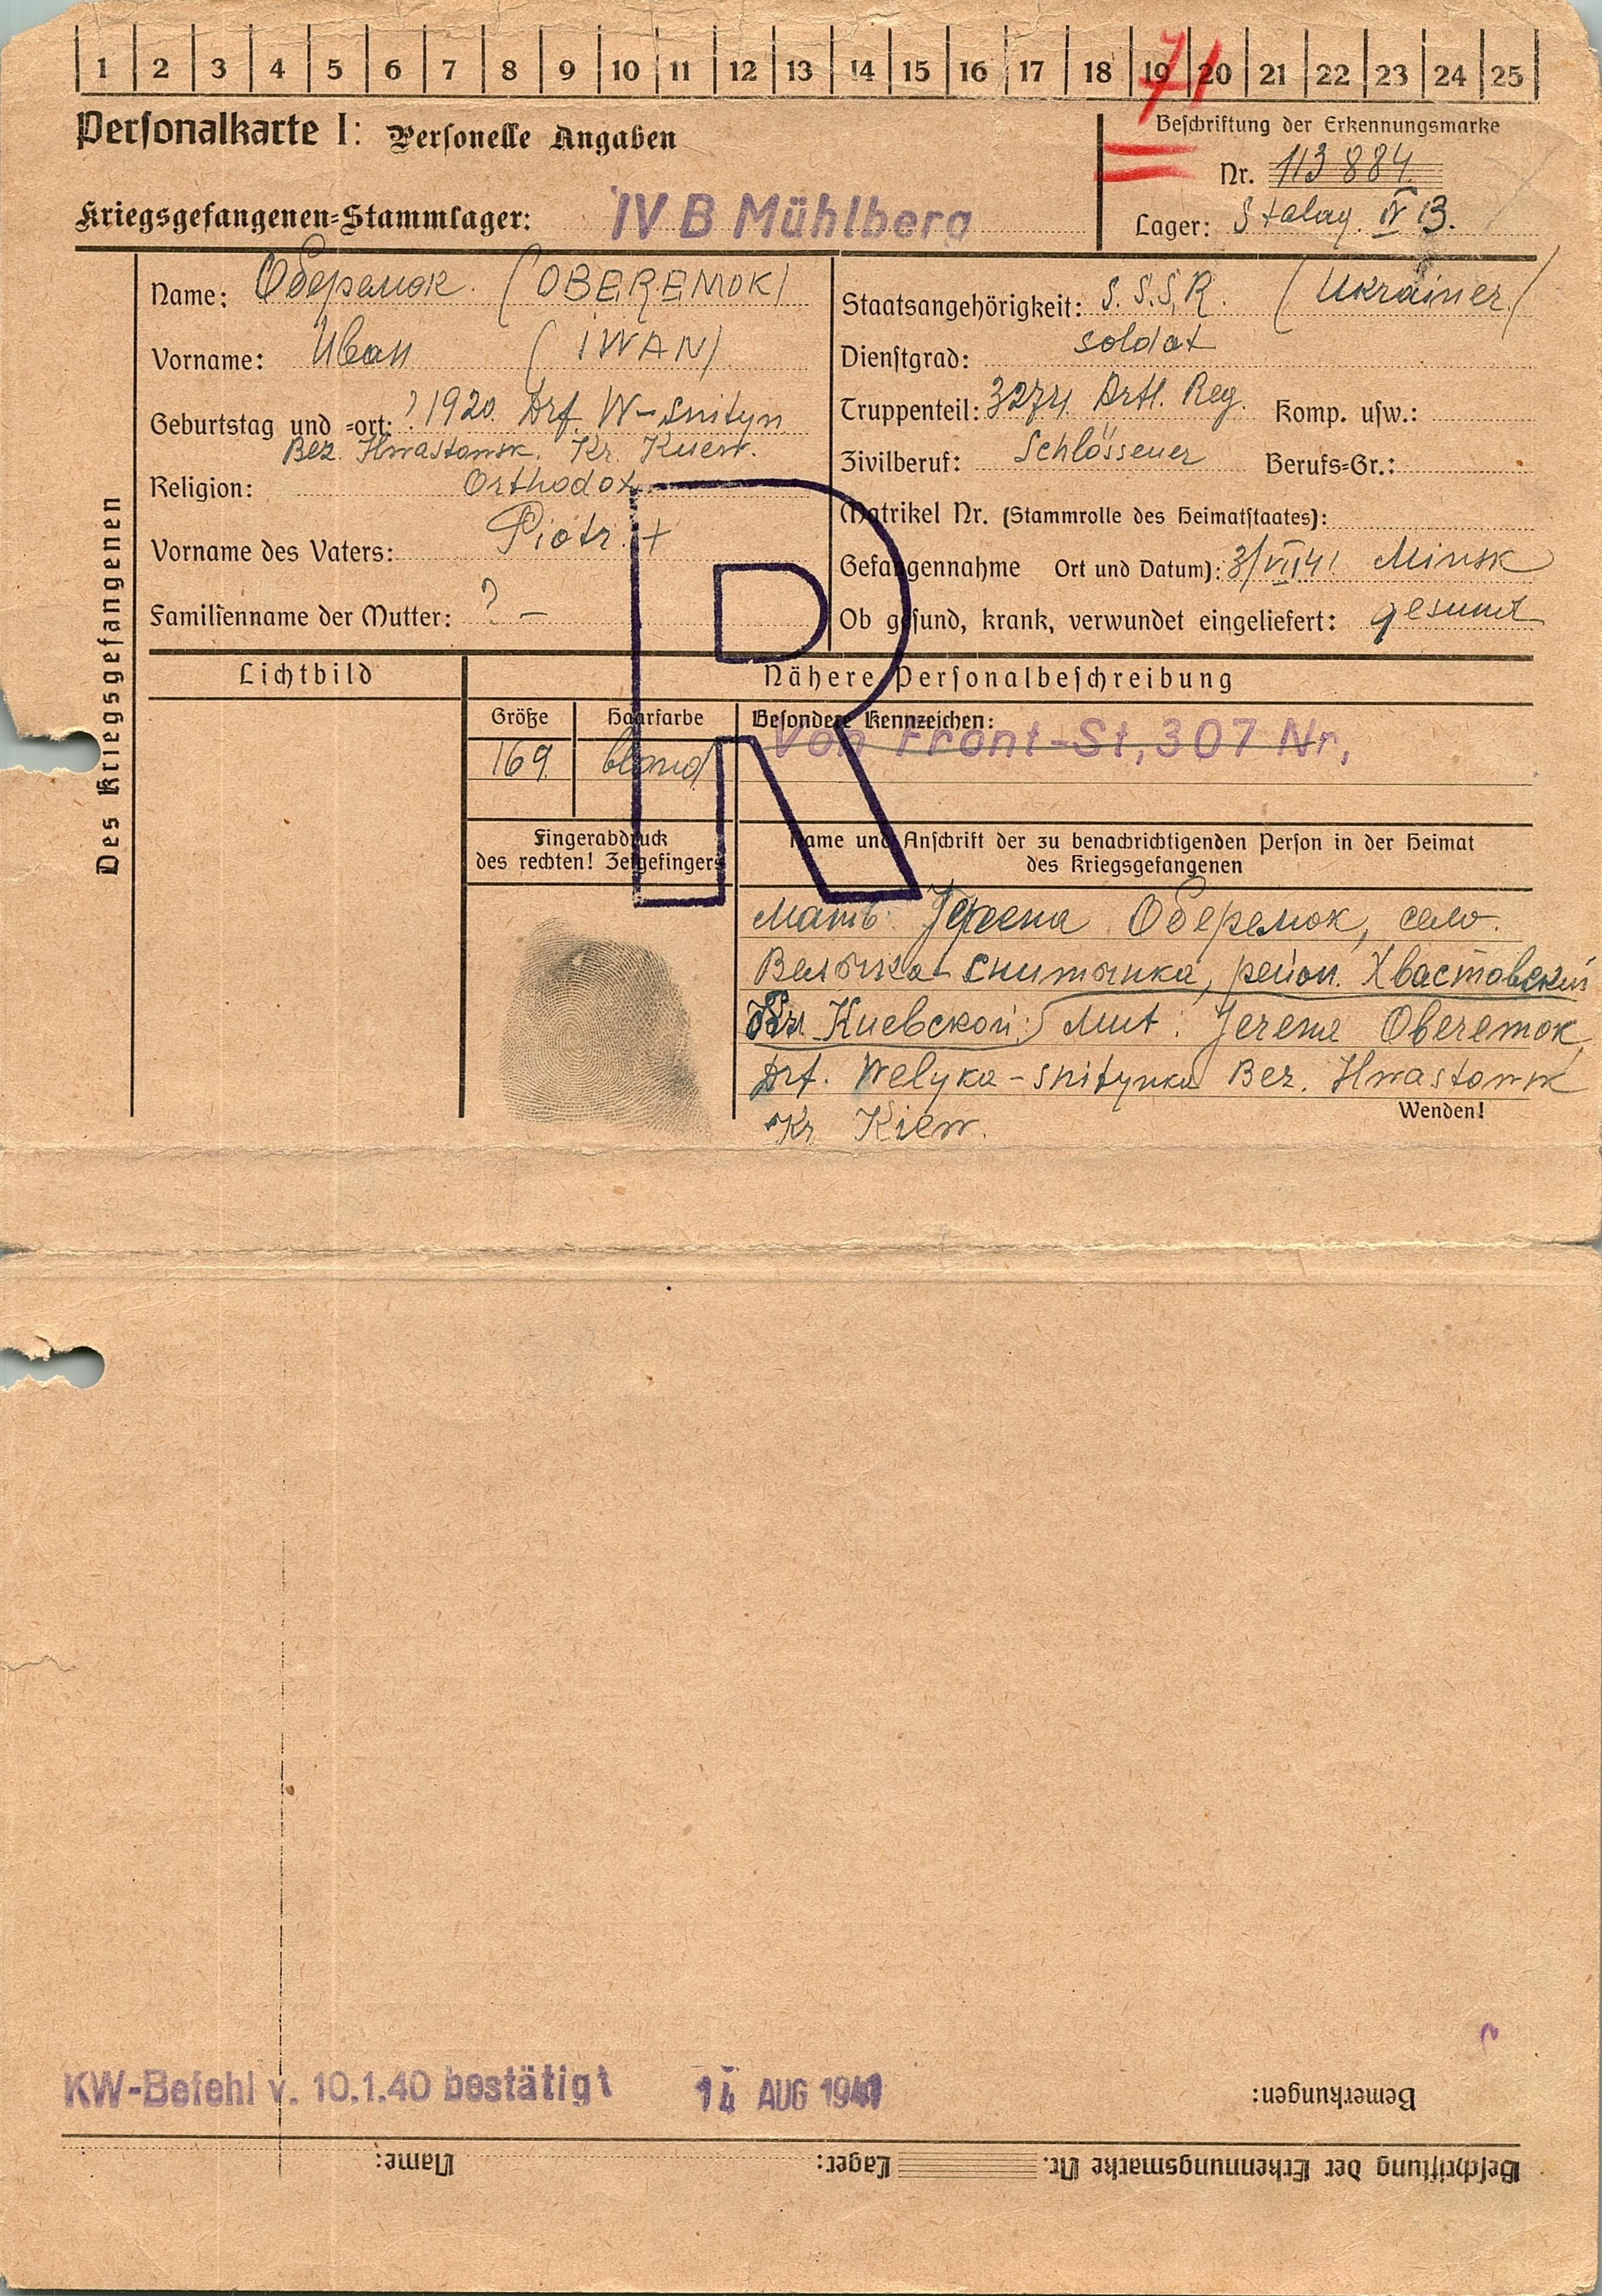 1 2 3 4 5 6 7 8 9 10 11 12 13 14 15 16 17 18 19 20 21 22 23 24 25
71
Personalkarte I: Personelle Angaben
Beschriftung der Erkennungsmarke
Nr. 113884
Kriegsgefangenen-Stammlager: IV B Mühlberg
Lager: Stalag IV B.
Des Kriegsgefangenen
Name: Оберемок (OBEREMOK)
Vorname: Иван (IWAN)
Geburtstag und -ort: ? 1920. Drf. W-Snityn
Bez. Hwastowsk. Kr. Kiew.
Religion: Orthodox
Vorname des Vaters: Piotr. +
Familienname der Mutter: ? –
Staatsangehörigkeit: S.S.S.R. (Ukrainer)
Dienstgrad: soldat
Truppenteil: 3274. Artl. Reg. Komp. usw.:
Zivilberuf: Schlössener Berufs-Gr.:
Matrikel Nr. (Stammrolle des Heimatstaates):
Gefangennahme Ort und Datum): 3/VII 41 Minsk
Ob gesund, krank, verwundet eingeliefert: gesund
R
Lichtbild
Nähere Personalbeschreibung
Größe Haarfarbe Besondere Kennzeichen:
169 blond Von Front-St, 307 Nr,
Fingerabdruck
des rechten! Zeigefingers
Name und Anschrift der zu benachrichtigenden Person in der Heimat
des Kriegsgefangenen
Мать: Оберемок, село.
снитынка, Хвастовский
Киевской: Mut: Jereme Oberemok,
Drf. Welyka-snitynka Bez. Hwastowsk
Kr Kiew.
Wenden!
KW-Befehl v. 10.1.40 bestätigt 14 AUG 1941
Bemerkungen:
Beschriftung der Erkennungsmarke Nr. Lager: Name: